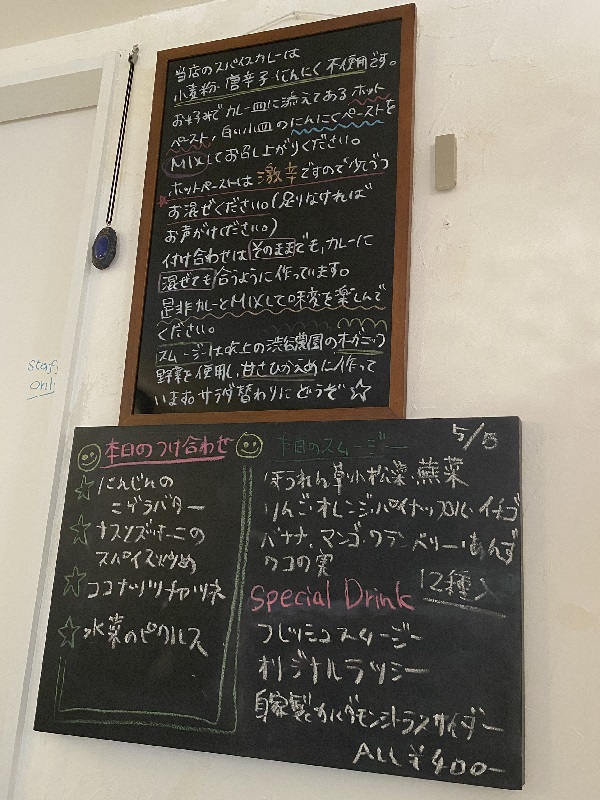 当店のスパイスカレーは
小麦粉・唐辛子・にんにく不使用です。
お好みでカレー皿に添えてあるホット
ペースト、白い小皿のにんにくペーストを
MIXしてお召し上がりください。
ホットペーストは激辛ですので少しづつ
お混ぜください。(足りなければ
お声がけください)
付け合わせはそのままでも、カレーに
混ぜても合うように作っています。
是非カレーとMIXして味変を楽しんで
ください。
スムージーは吹上の渋谷農園のオーガニック
野菜を使用し、甘さひかえめに作って
います。サラダ替わりにどうぞ☆
Staff
Only
本日のつけ合わせ
☆にんじんの
ニゲラバター
☆ナスとズッキーニの
スパイス炒め
☆ココナッツチャツネ
☆水菜のピクルス
本日のスムージー 5/5
ほうれん草・小松菜・蕪菜
りんご・オレンジ・パイナップル・イチゴ
バナナ、マンゴ・クランベリー・あんず
クコの実 12種入
Special Drink
フレッシュスムージー
オリジナルラッシー
自家製カルダモンシトラスサイダー
ALL ¥400-